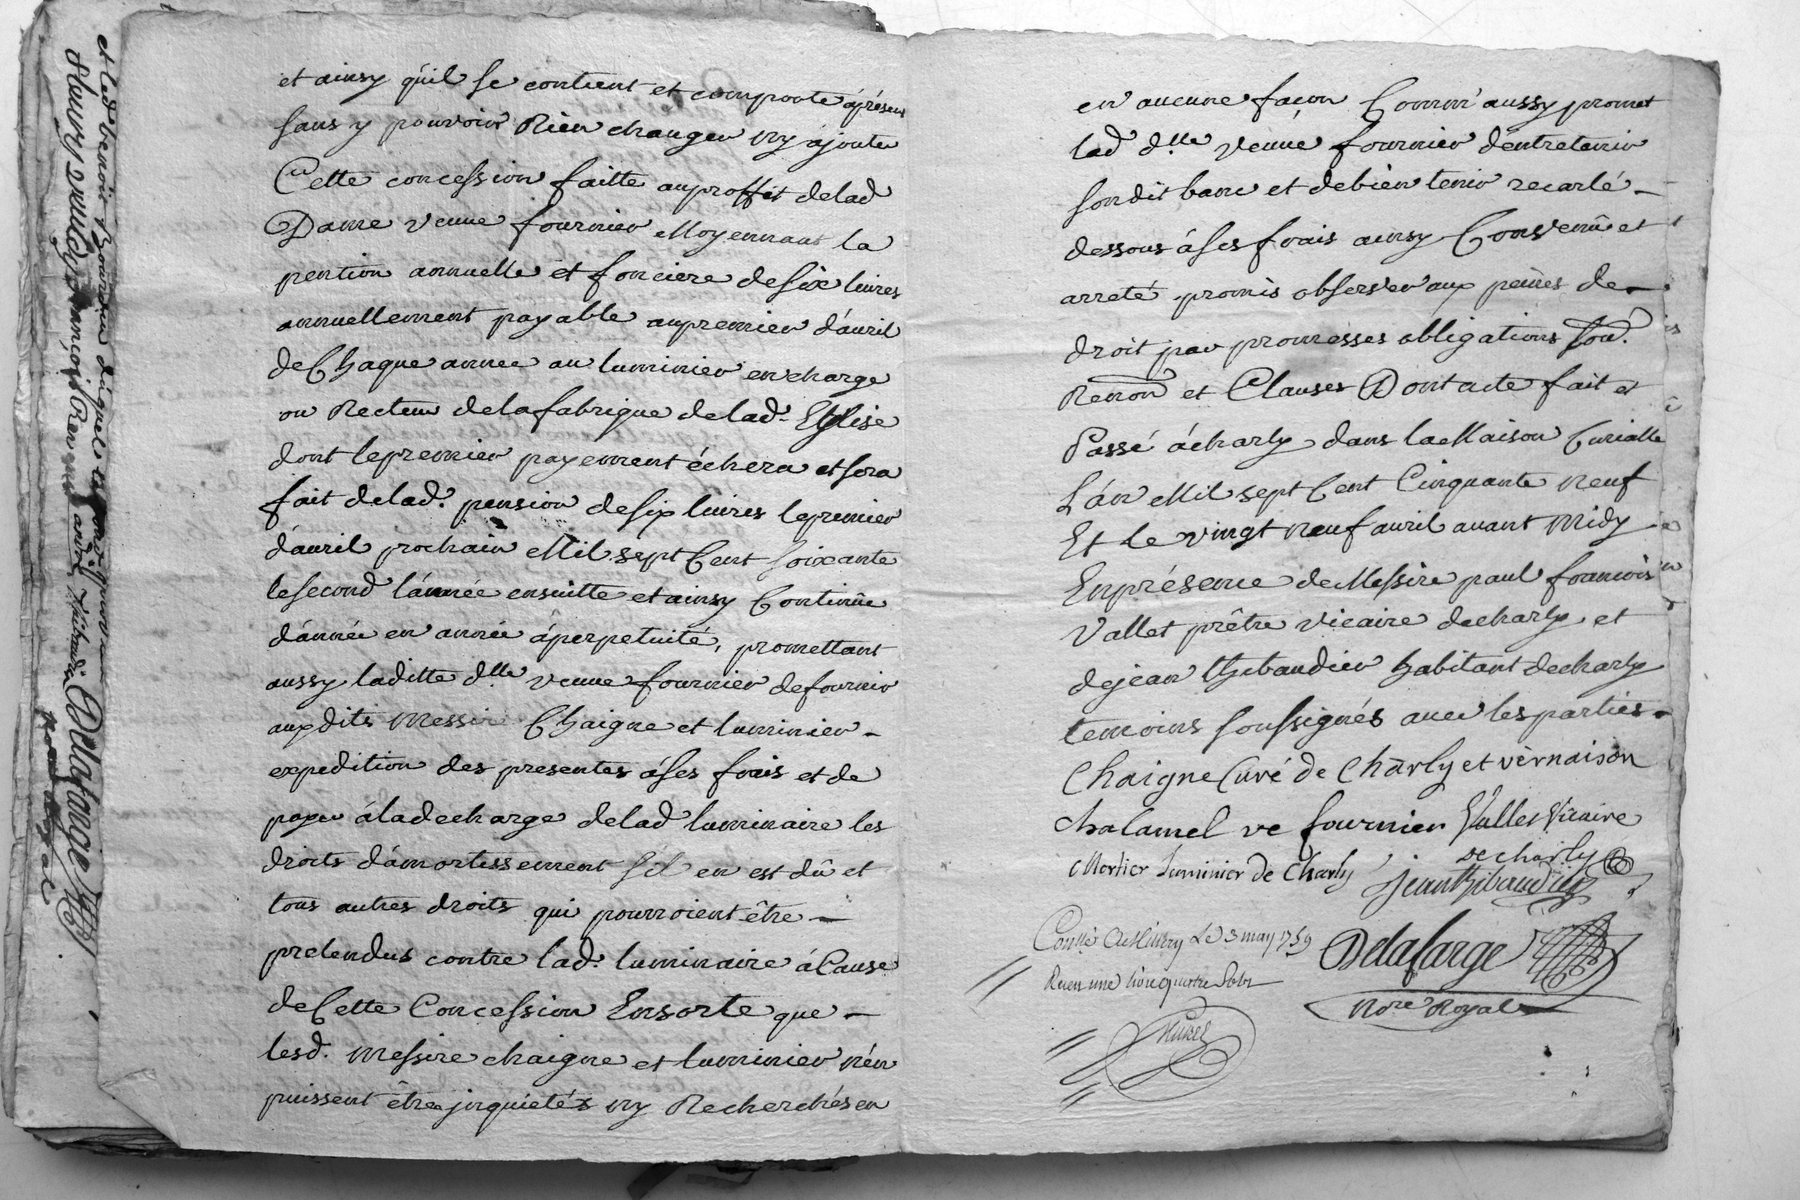 et ainsy qu'il se contient et comporte àprésent
sans y pouvoir Rien changer ny ajouter
Cette concession faitte auproffit delad
Dame veuue fournier Moyennant la
pention annuelle et fonciere desix liures
annuellement payable aupremier d'auril
deChaque année au luminier encharge
ou Recteur delafabrique delad. Eglise
dont lepremier payement échera et sera
fait delad. pension desix liures lepremier
d'auril prochain Mil sept Cent soixante
lesecond l'année ensuitte et ainsy Continüe
d'année en année àperpetuité, promettant
aussy laditte dlle veuue fournier defournir
auxdits Messire Chaigne et luminier
expedition des presentes àses frais et de
payer àladecharge delad luminaire les
droits d'amortissement s'il en est dû et
tous autres droits qui pourroient être
pretendus contre lad. luminaire àCause
deCette Concession Ensorte que
lesd. Messire chaigne et luminier n'en
puissent être jnquietés ny Recherchés en
en aucune façon Comm' aussy promet
lad dlle veuue fournier d'entretenir
sondit banc et debien tenir recarlé
dessous àses frais ainsy Convenü et
arreté promis observer aux peines de
droit par promesses obligations
Renon et Clauses Dont acte fait et
Passé àcharly dans laMaison Curialle
L'an Mil sept Cent Cinquante neuf
Et le vingt neuf auril auant Midy
Enprésence deMessire paul francois
Vallet prêtre vicaire decharly et
dejean thibaudier habitant decharly
temoins soussignés auec les parties
Chaigne Curé de Charly et vernaison
chalamel ve fournier Vallet Vicaire
de charly
Mortier Luminier de Charly jean thibaudier
Le 3 may 1759
Delafarge
Recu une liure quatre sols
Nore Royal
et led benoit
fleury
françois
andré thibaudier Delafarge